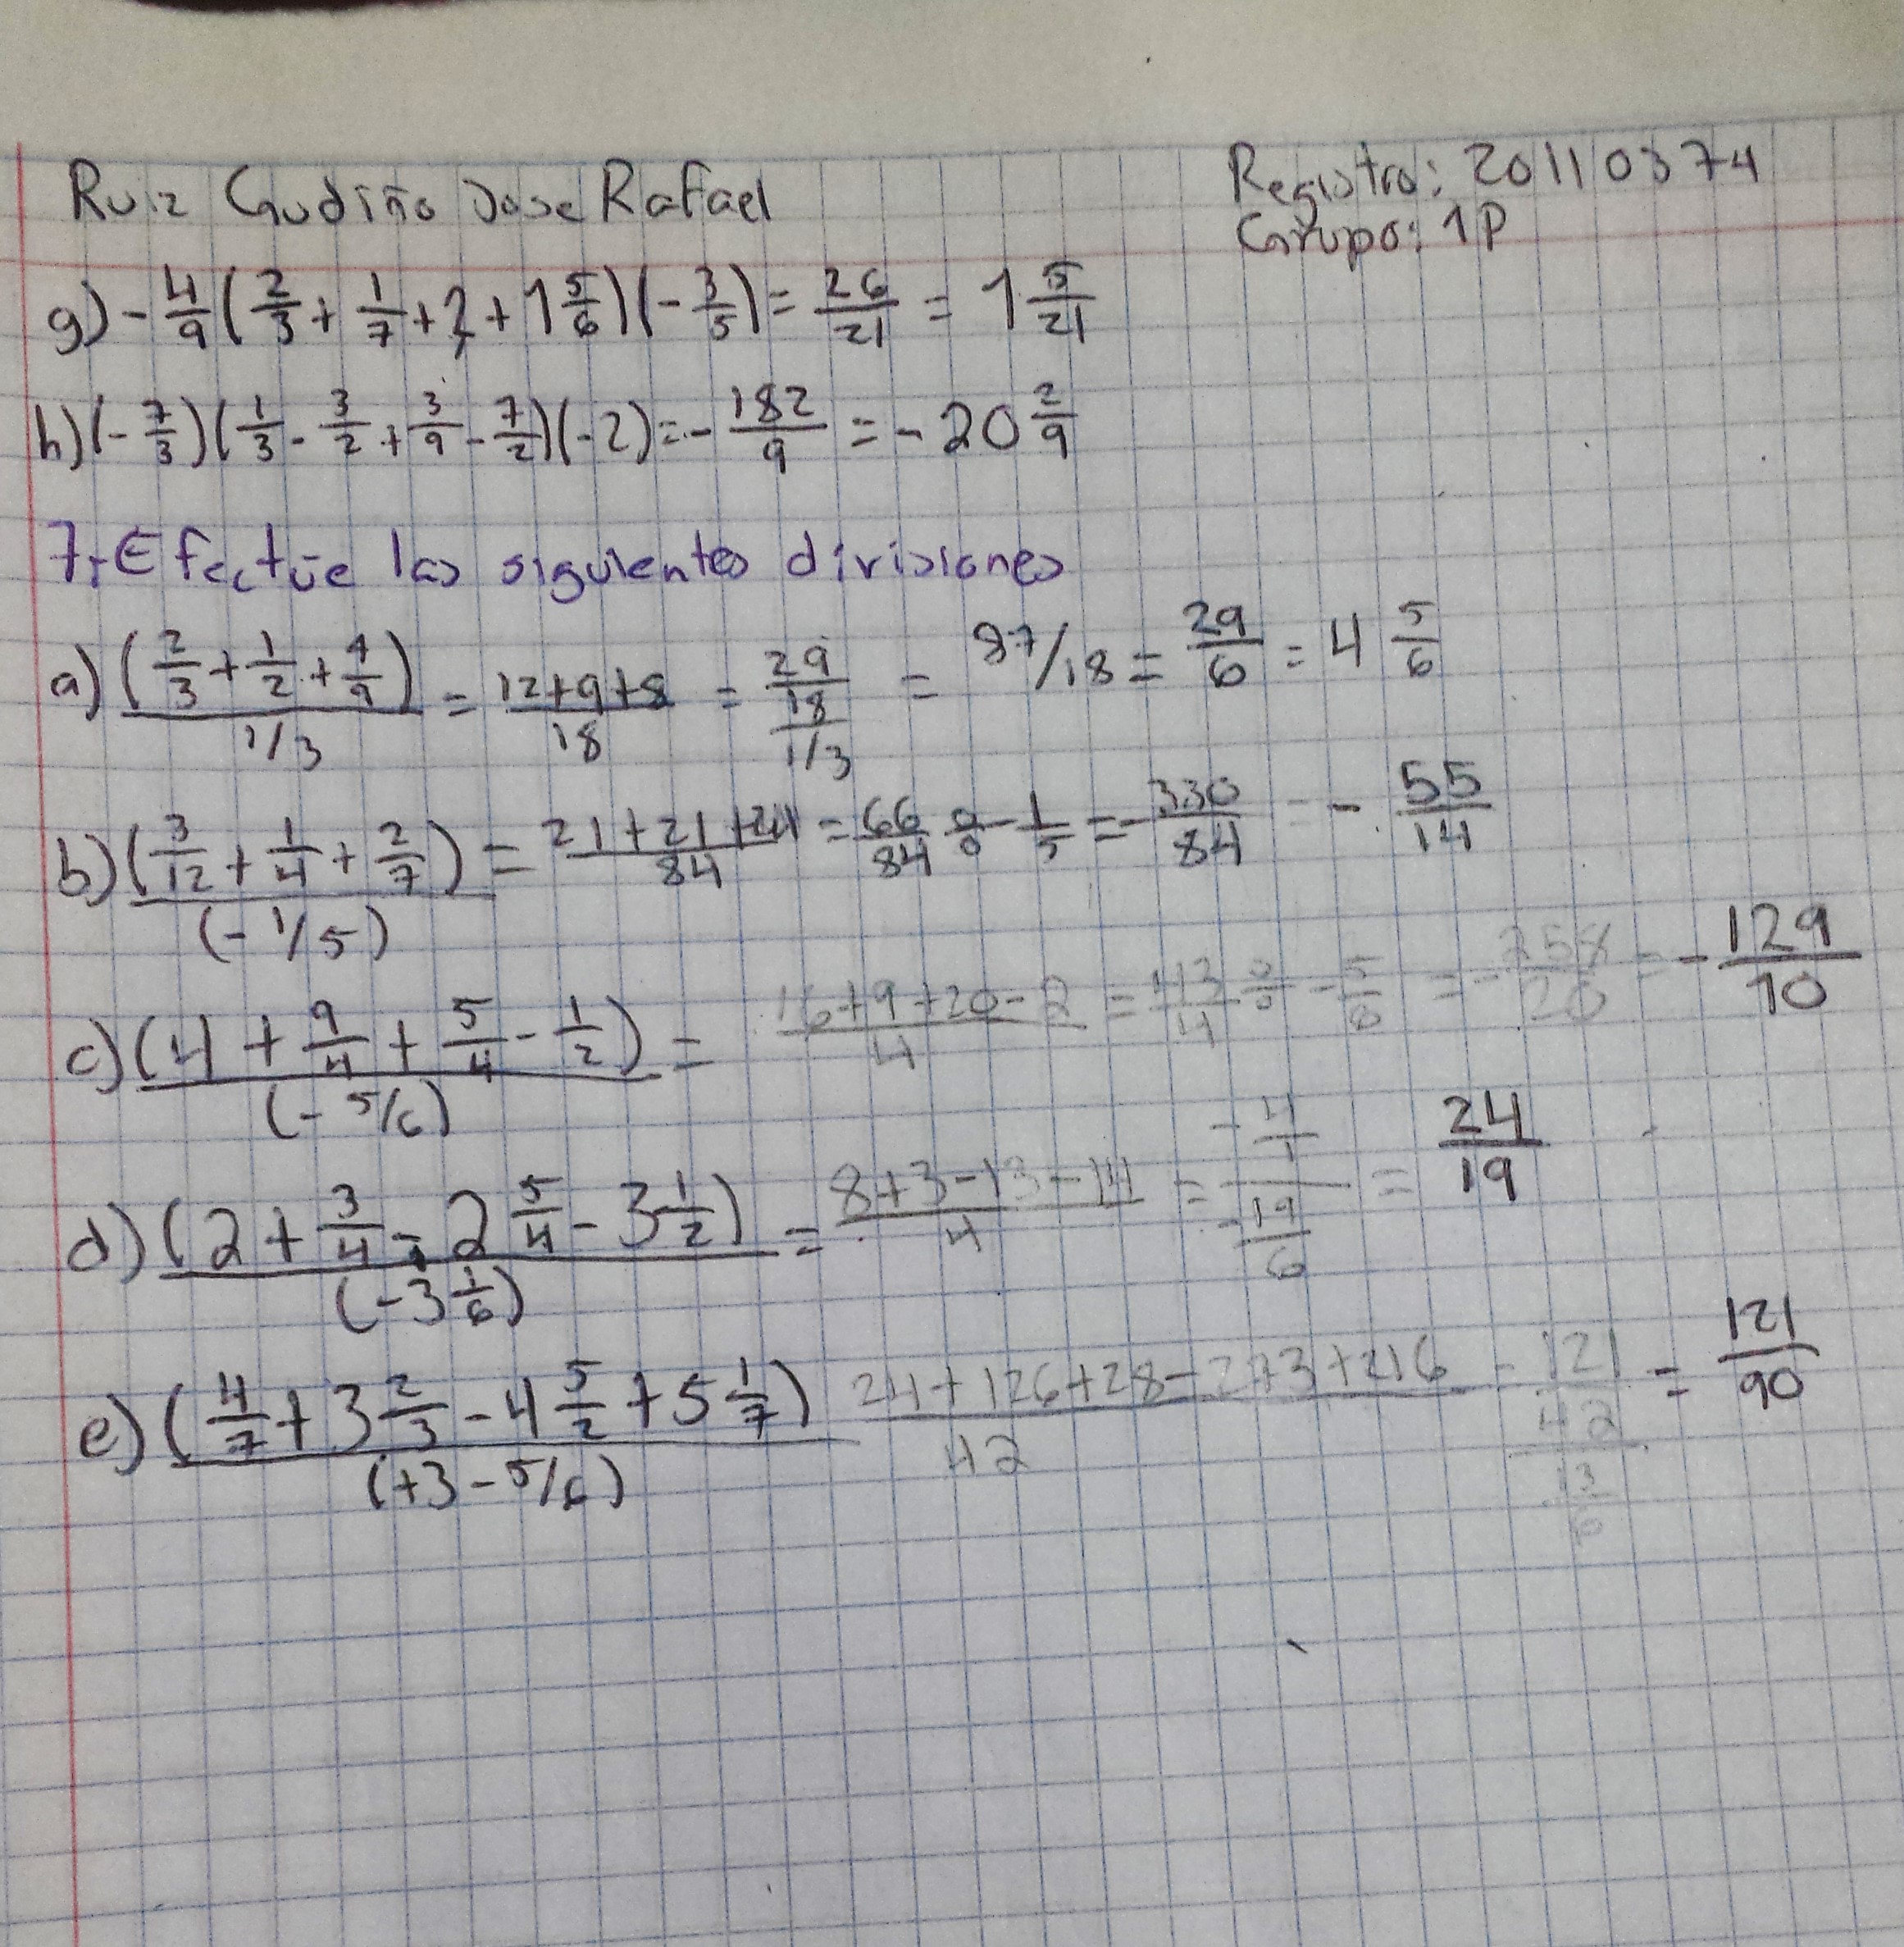 Ruiz Gudiño Jose Rafael
Registro: 20110374
Grupo: 1P
g) - 4/9 (2/3 + 1/7 + 2 + 1 5/6)(- 3/5) = 26/21 = 1 5/21
h) (- 7/3)(1/3 - 3/2 + 3/9 - 7/2)(-2) = - 182/9 = - 20 2/9
7.- Efectúe las siguientes divisiones
a) (2/3 + 1/2 + 4/9) / 1/3 = 12+9+8 / 18 = 29/18 / 1/3 = 87/18 = 29/6 = 4 5/6
b) (3/12 + 1/4 + 2/7) / (- 1/5) = 21+21+24 / 84 = 66/84 ÷ - 1/5 = - 330/84 = - 55/14
c) (4 + 9/4 + 5/4 - 1/2) / (- 5/6) = 16+9+20-2 / 4 = 43/4 ÷ - 5/6 = - 258/20 = - 129/10
d) (2 + 3/4 - 2 5/4 - 3 1/2) / (-3 1/6) = 8+3-13-14 / 4 = - 4/1 / - 19/6 = 24/19
e) (4/7 + 3 2/3 - 4 5/2 + 5 1/7) / (+3 - 5/6) 24+126+28-273+216 / 42 = 121/42 / 13/6 = 121/90